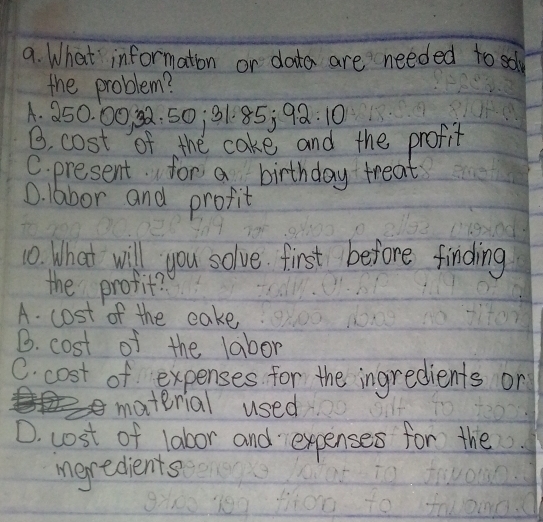 9. What information or data are needed to solv
the problem?
A. 250.00, 32.50; 31.85; 92.10
B. cost of the cake and the profit
C. present for a birthday treat
D. labor and profit
10. What will you solve first before finding
the profit?
A. cost of the cake
B. cost of the labor
C. cost of expenses for the ingredients or
material used
D. cost of labor and expenses for the
ingredients